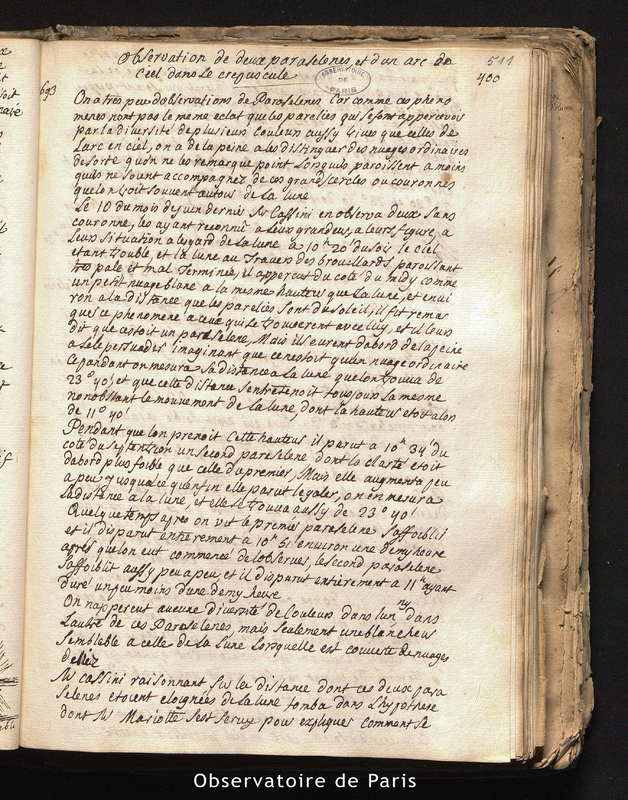 Observation de deux paraselenes, et d'un arc de
Ciel dans le crepuscule
511
OBSERVATOIRE DE PARIS
400
693
On a tres peu d'observations de Paraselenes Car comme ces pheno
menes n'ont pas le meme eclat que les parelies qui se font appercevoir
par la diversité de plusieurs couleurs aussy vives que celles de
L'arc en ciel, on a de la peine a les distinguer des nuages ordinaires
de sorte qu'on ne les remarque point Lorsquils paroissent a moins
qu'ils ne soient accompagnez de ces grands cercles ou couronnes
que lon voit souvent autour de la lune
Le 10 du mois de Juin dernier Mr Cassini en observa deux sans
couronne, les ayant reconnu a leur grandeur, a leur figure, a
Leur Situation a legard de la lune a 10h 20' du soir le ciel
etant trouble, et la lune au Travers des brouillards paroissant
tres pale et mal Terminée, il appercut du coté du midy comme
un petit nuage blanc a la mesme hauteur que la lune, et envi
ron a la distance que les parelies sont du soleil, il fit remar
quer ce phenomene a ceux qui se trouverent avec luy, et il leur
dit que c'estoit un paraselene, Mais ils eurent d'abord de la peine
a se le persuader imaginant que ce n'estoit qu'un nuage ordinaire
Cependant on mesura sa distance a la lune que lon trouva de
23° 40', et que cette distance s'entretenoit toujours la mesme
nonobstant le mouvement de la lune, dont la hauteur etoit alors
de 11° 40'
Pendant que lon prenoit Cette hauteur il parut a 10h 34' du
coté du septentrion un second paraselene dont la clarté etoit
d'abord plus foible que celle du premier, Mais elle augmenta peu
a peu jusqu'a ce qu'enfin elle parut legaler, on en mesura
la distance a la lune, et elle se trouva aussy de 23° 40'
Quelque temps apres on vit le premier paraselene s'affoiblir
et il disparut entierement a 10h 51' environ une demy heure
après quelon eut commencé de l'observer, le second paraselene
s'affoiblit aussy peu a peu, et il disparut entierement a 11h ayant
duré un peu moins d'une demy heure
On n'appercut aucune diversité de Couleurs dans l'un ny dans
L'autre de ces Paraselenes, mais seulement une blancheur
semblable a celle de la Lune Lorsquelle est couverte de nuages
deliez
Mr Cassini raisonnant sur la distance dont ces deux para
selenes etoient eloignées de la lune tomba dans L'hypothese
dont Mr Mariotte s'est servy pour expliquer comment se
Observatoire de Paris